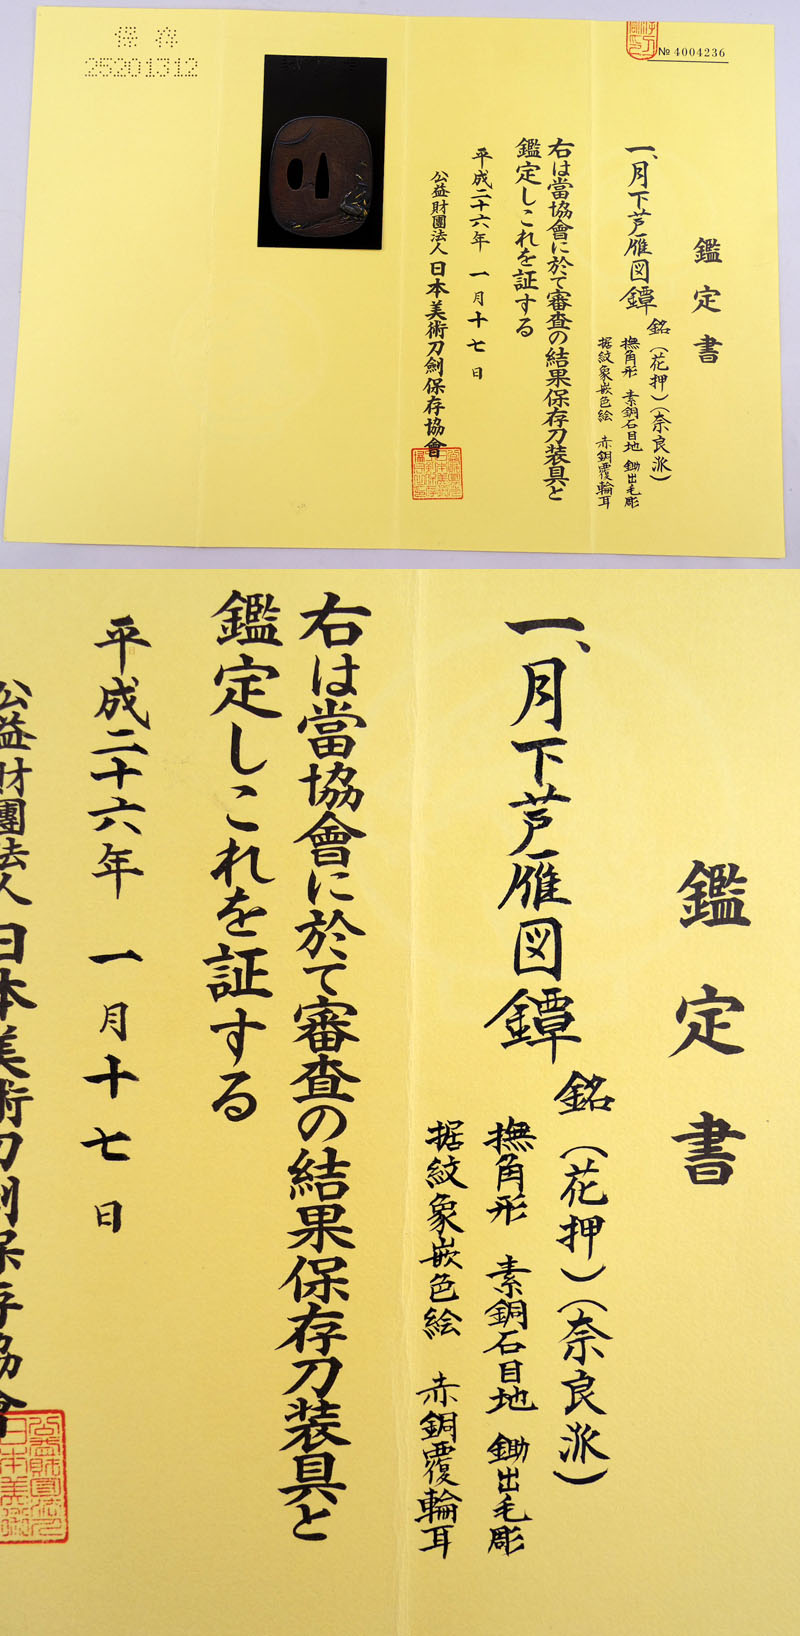 鑑定書
№ 4004236
一、月下芦雁図鐔
銘(花押)(奈良派)
撫角形 素銅石目地 鋤出毛彫
据紋象嵌色絵 赤銅覆輪耳
右は當協會に於て審査の結果保存刀装具と
鑑定しこれを証する
平成二十六年 一月十七日
公益財團法人 日本美術刀劍保存協會
保存
25201312
鑑定書
一、月下芦雁図鐔
銘(花押)(奈良派)
撫角形 素銅石目地 鋤出毛彫
据紋象嵌色絵 赤銅覆輪耳
右は當協會に於て審査の結果保存刀装具と
鑑定しこれを証する
平成二十六年 一月十七日
公益財團法人 日本美術刀劍保存協會